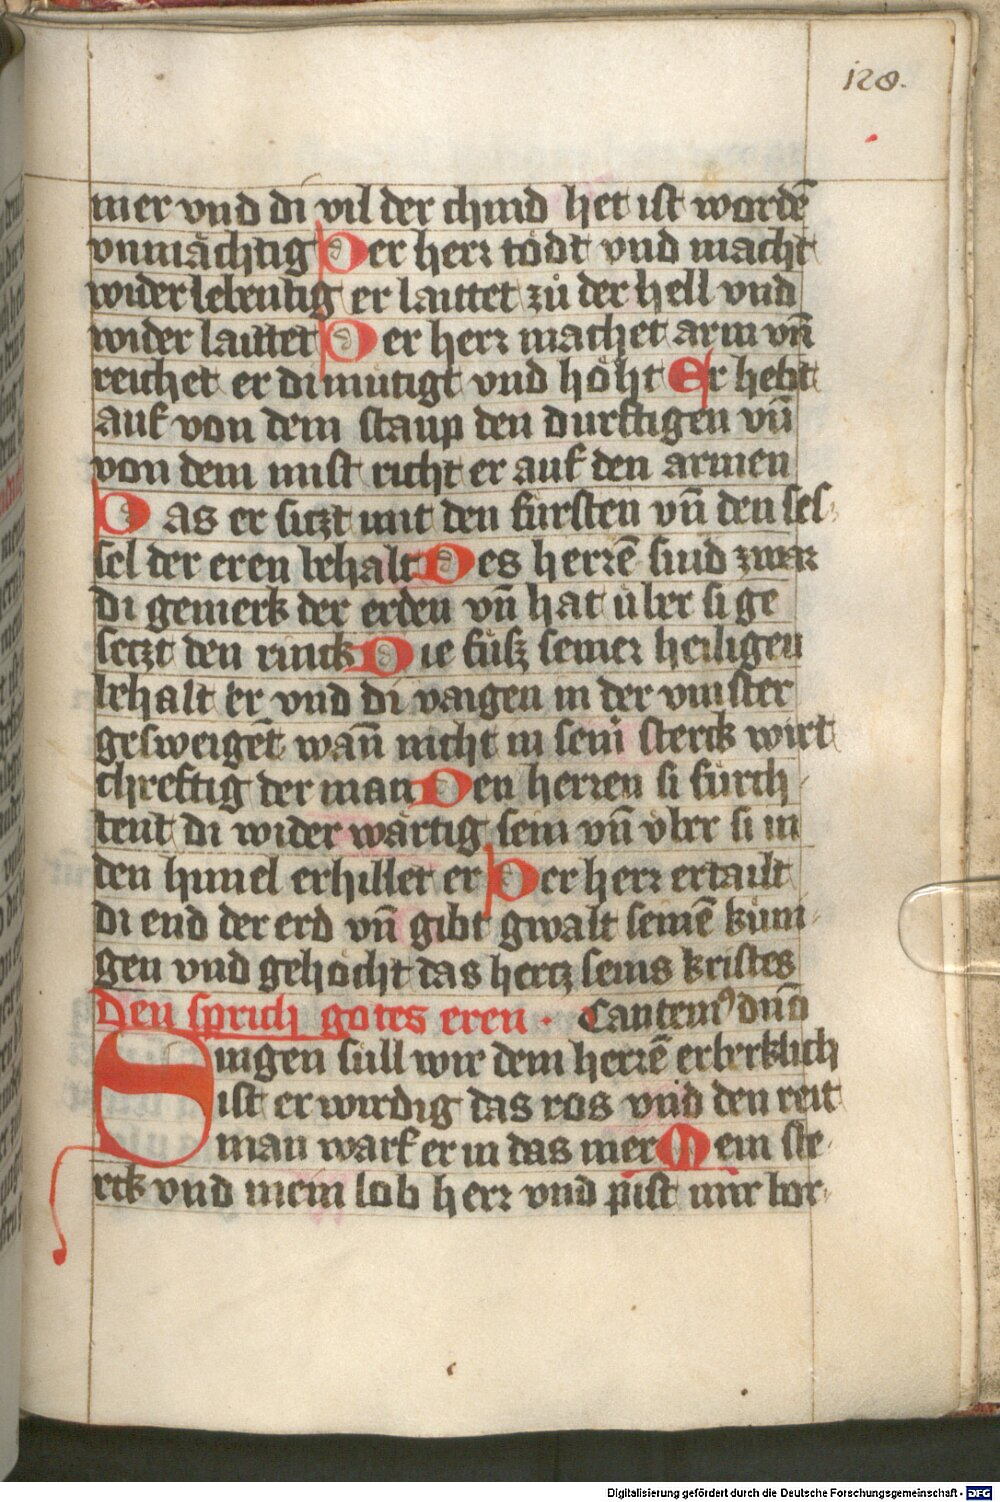 128.
mer vnd di vil der chind het ist wordē
vnmächtig Der herr tödt vnd macht
wider lebentig er laittet zů der hell vnd
wider laittet Der herr machet arm vn̄
reichet er dimütigt vnd höht Er hebt
auf von dem staup den durftigen vn̄
von dem mist richt er auf den armen
Das er sitzt mit den fürsten vn̄ den ses
sel der eren behalt Des herrē sind zwar
di gemerk der erden vn̄ hat über si ge
setzt den rinck Die füsz seiner heiligen
behalt er vnd di vaigen in der vinster
gesweigēt wan̄ nicht in sein̄ sterck wirt
chreftig der man Den herren si fürch
tent di wider wärtig sein vn̄ vber si in
den himel erhillet er Der herr ertailt
di end der erd vn̄ gibt gwalt seinē küni
gen vnd gehöcht das hertz seins kristes
Den sprich gotes eren · Cantem⁹ dn̄o
Singen süll wir dem herrē erberklich
ist er wirdig das ros vnd den reit
man warf er in das mer Mein ste
rck vnd mein lob herr vnd pist mir wor
Digitalisierung gefördert durch die Deutsche Forschungsgemeinschaft - DFG